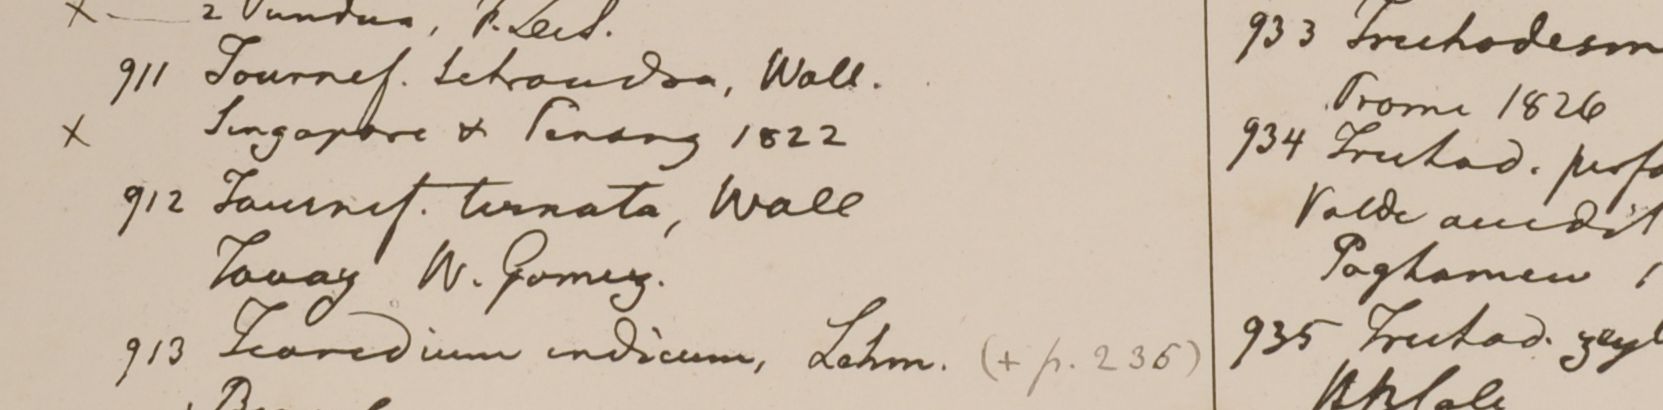 x — 2 Pundua, F. De S.
911 Tournef. tetrandra, Wall.
x Singapore & Penang 1822
912 Tournef. ternata, Wall
Tavay W. Gomez.
913 Tiaredium indicum, Lehm. (+ p. 236)
933 Trichodesm
Prome 1826
934 Trichod. perfo
Valde accedit
Paghamew 1
935 Trichod. zeyl